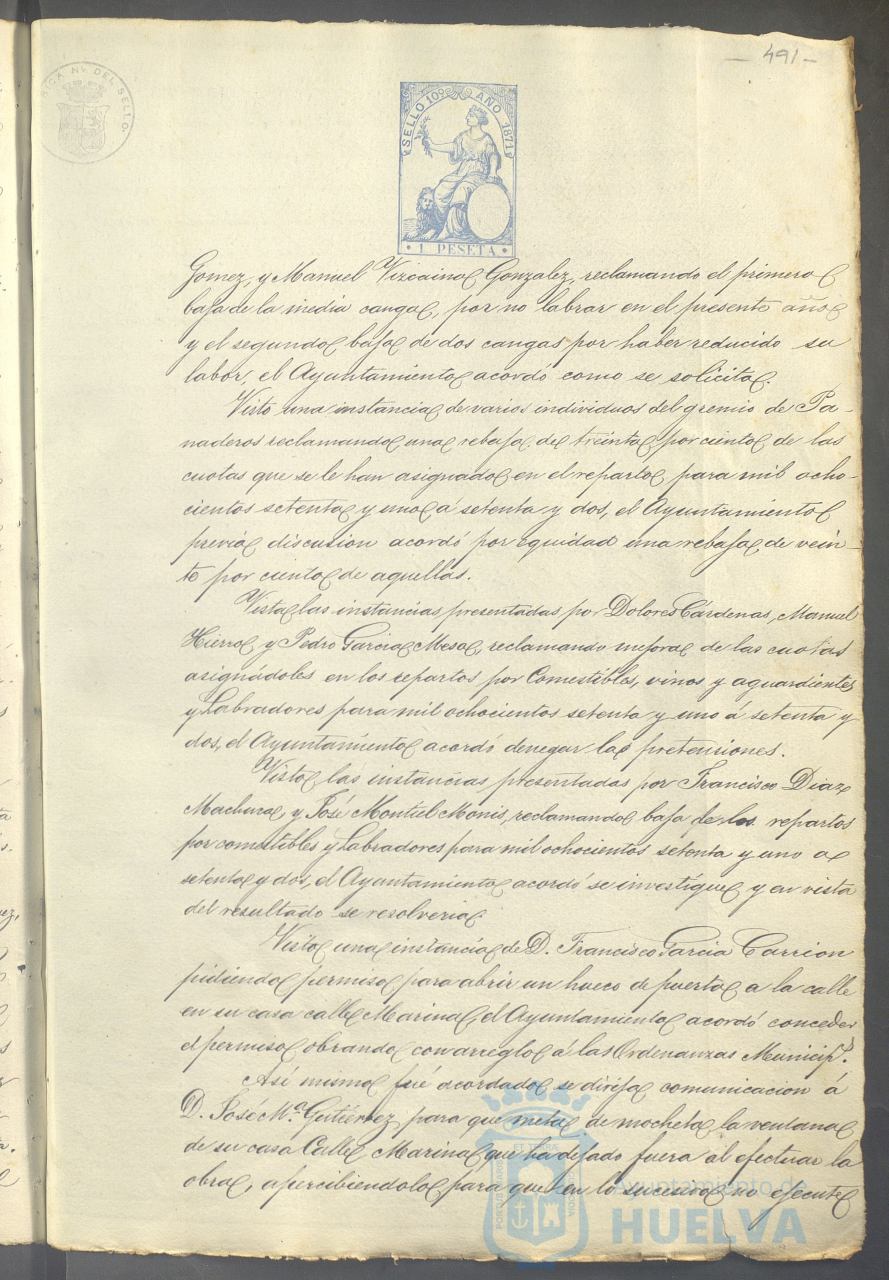 — 491 —
RICA Nl. DEL SELLO.
SELLO 10º AÑO 1871
· 1 PESETA ·
Gomez, y Manuel Vizcaino Gonzalez, reclamando el primero
baja de la media canga, por no labrar en el presente año
y el segundo baja de dos cangas por haber reducido su
labor, el Ayuntamiento acordó como se solicita.
Visto una instancia de varios individuos del gremio de Pa-
naderos reclamando una rebaja de treinta por ciento de las
cuotas que se le han asignado en el reparto para mil ocho-
cientos setenta y uno á setenta y dos, el Ayuntamiento
previa discusion acordó por equidad una rebaja de vein-
te por ciento de aquellas.
Vista las instancias presentadas por Dolores Cárdenas, Manuel
Hierro, y Pedro Garcia Mesa, reclamando mejora de las cuotas
asignádoles en los repartos por Comestibles, vinos y aguardientes
y Labradores para mil ochocientos setenta y uno á setenta y
dos, el Ayuntamiento acordó denegar las pretensiones.
Visto las instancias presentadas por Francisco Diaz
Machuca, y José Montiel Monis, reclamando baja de los repartos
por comestibles y Labradores para mil ochocientos setenta y uno a
setenta y dos, el Ayuntamiento acordó se investigue y en vista
del resultado se resolveria.
Visto una instancia de D. Francisco Garcia Carrion
pidiendo permiso para abrir un hueco de puerta a la calle
en su casa calle Marina, el Ayuntamiento acordó conceder
el permiso obrando con arreglo á las Ordenanzas Municip.s
Así mismo fué acordado se dirija comunicacion á
D. José Mª. Gutiérrez, para que meta de mocheta la ventana
de su casa Calle Marina que ha dejado fuera al efectuar la
obra, apercibiendolo para que en lo sucesivo no ejecute
Ayuntamiento de
HUELVA